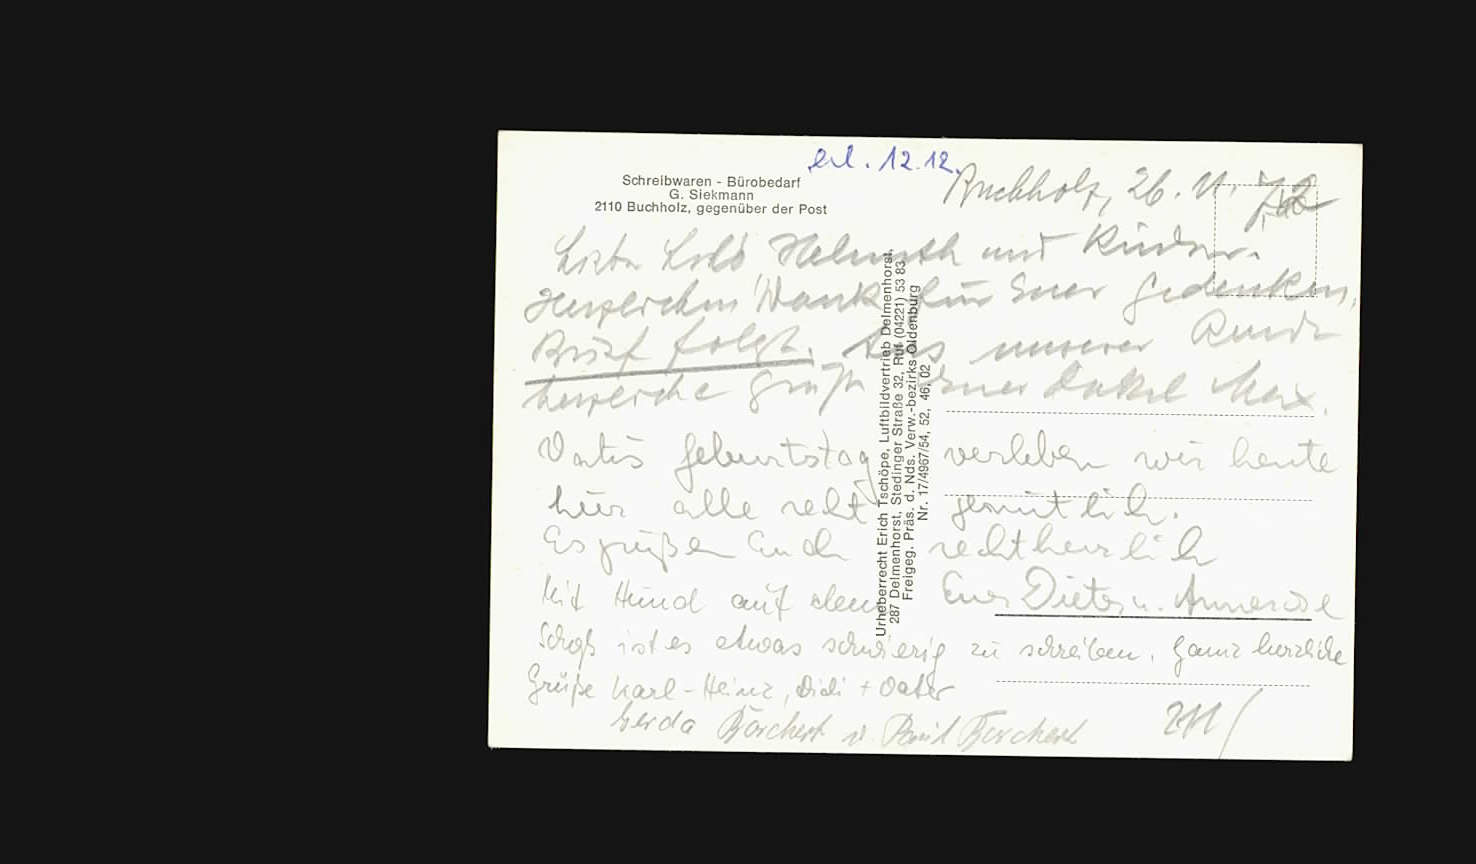 erl. 12.12.
Schreibwaren - Bürobedarf
G. Siekmann
2110 Buchholz, gegenüber der Post
Buchholz, 26. 11. 72
Helmuth und Kinder.
Herzlichen Dank für Euer Gedenken,
Brief folgt. Aus unserer Runde
herzliche Grüße Euer Max.
Vatis Geburtstag verleben wir heute
hier alle recht gemütlich.
Es grüßen Euch recht herzlich
Eure Dieter u. Annerose
Mit Hund auf dem
Schoß ist es etwas schwierig zu schreiben. Ganz herzliche
Grüße Karl-Heinz, Didi +
Gerda Borchert u. Borchert
211
Urheberrecht Erich Tschöpe, Luftbildvertrieb Delmenhorst,
287 Delmenhorst, Stedinger Straße 32, Ruf (04221) 53 83
Freigeg. Präs. d. Nds. Verw.-bezirks Oldenburg
Nr. 17/4967/54, 52, 46, 02